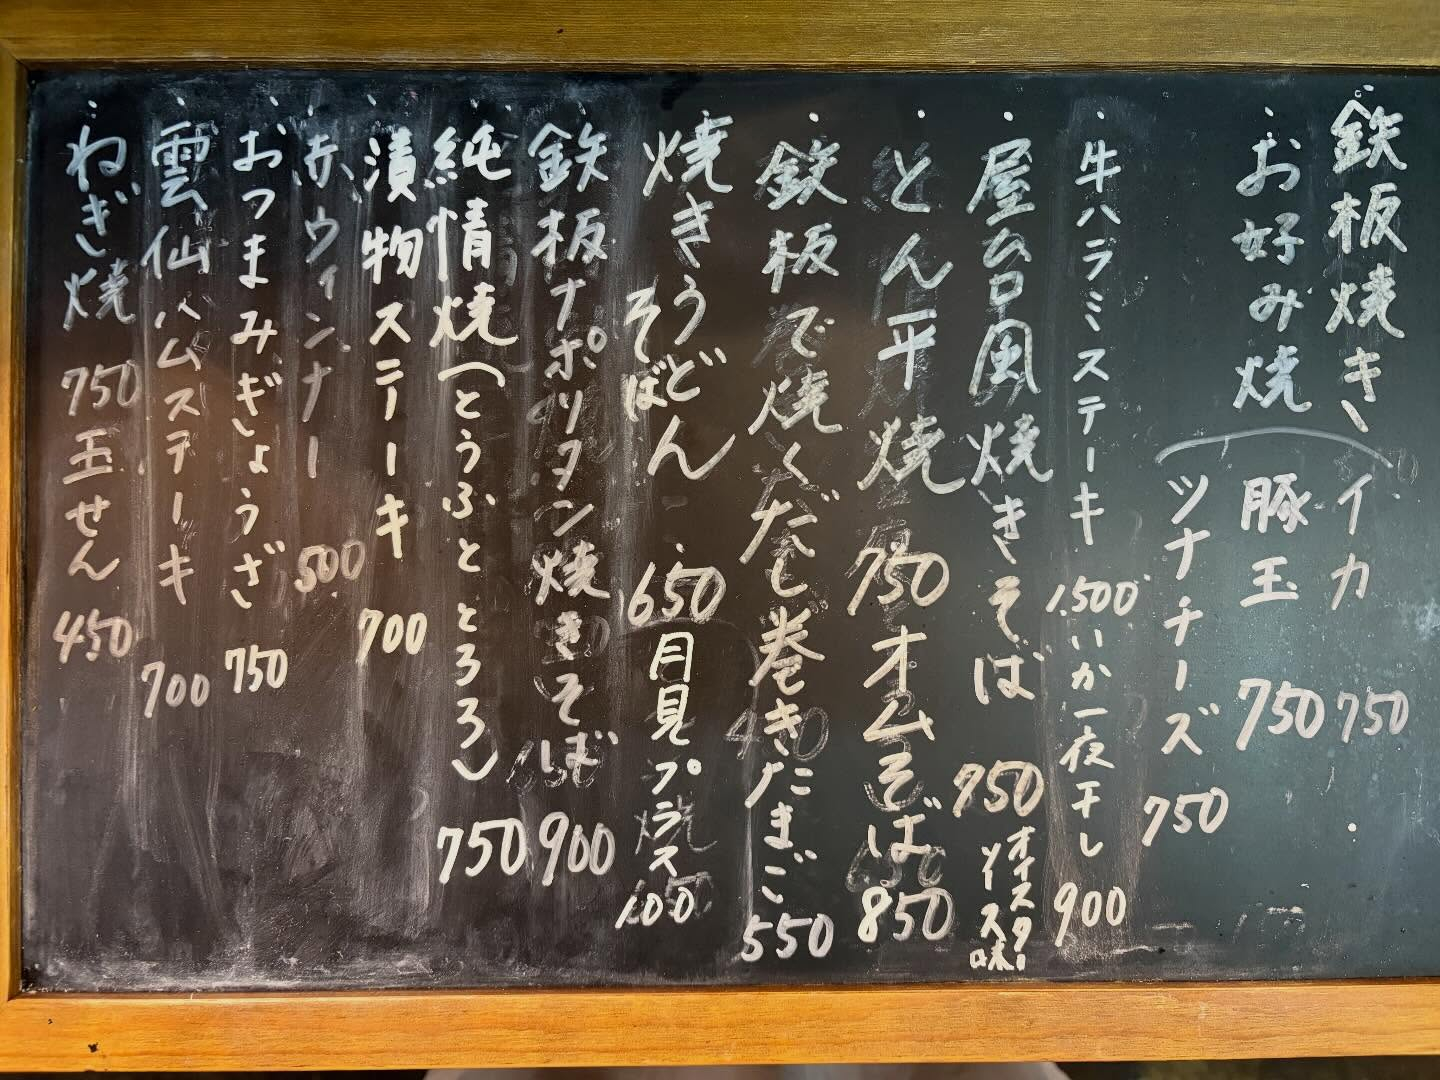 鉄板焼き
イカ 750
お好み焼
豚玉 750
ツナチーズ 750
牛ハラミステーキ 1,500
いか一夜干し 900
屋台風焼きそば 750
オイスターソース味
とん平焼 750
オムそば 850
鉄板で焼くだし巻きたまご 550
焼きうどん
そばめし 650
月見プラス 100
鉄板ナポリタン焼きそば 900
純情焼(とうふととろろ) 750
漬物ステーキ 700
赤ウィンナー 500
おつまみぎょうざ 750
雲仙ハムステーキ 700
ねぎ焼 750
玉せん 450